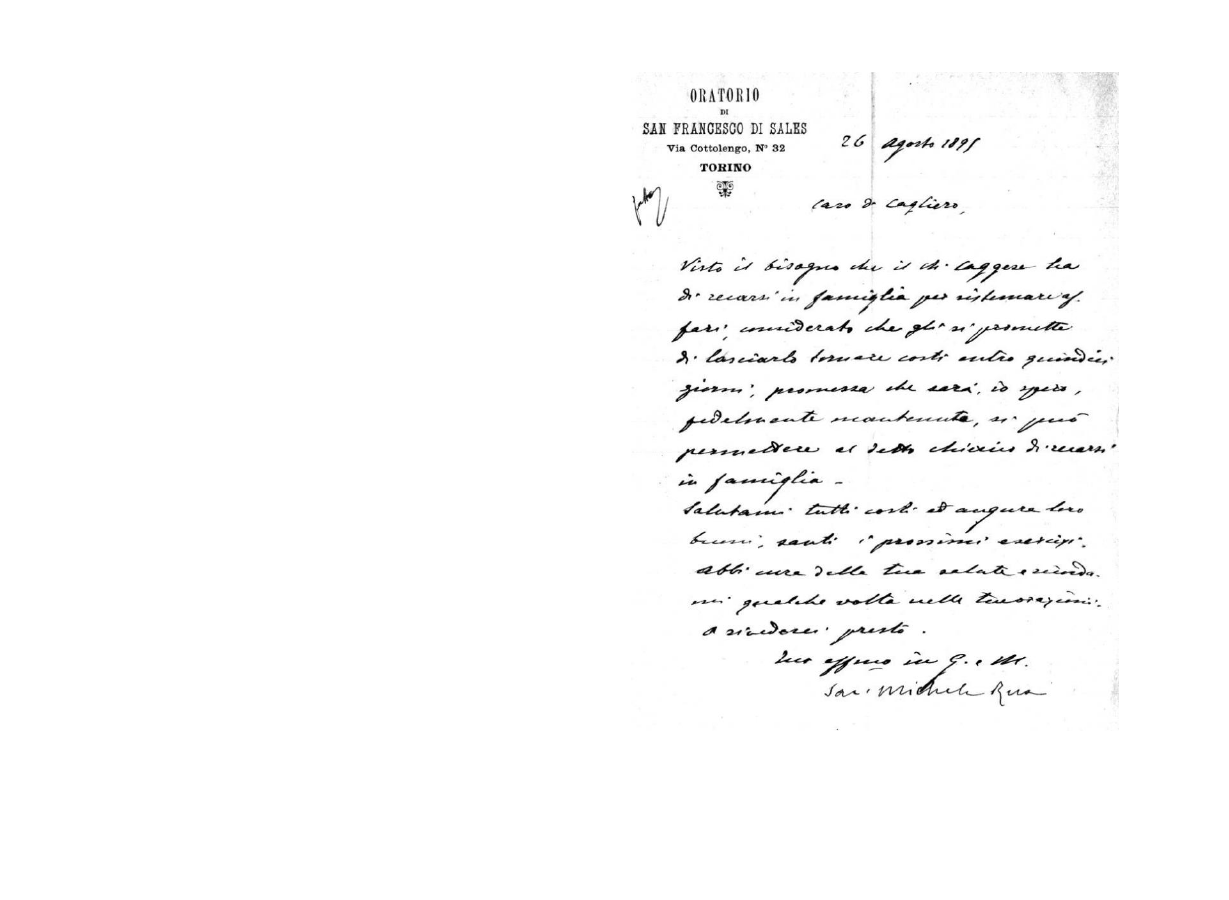 ORATORIO
DI
SAN FRANCESCO DI SALES
Via Cottolengo, N° 32
TORINO
26 Agosto 1895
Caro D. Cagliero,
Visto il bisogno che il ch. Caggese ha
di recarsi in famiglia per sistemare af-
fari, considerato che gli si promette
di lasciarlo tornare costì entro quindici
giorni, promessa che sarà, io spero,
fedelmente mantenuta, si può
permettere al detto chierico di recarsi
in famiglia -
Salutami tutti costì ed augura loro
buoni, santi i prossimi esercizi.
Abbi cura della tua salute e ricorda-
mi qualche volta nelle tue orazioni.
A rivederci presto.
Tuo affmo in G. e M.
Sac. Michele Rua